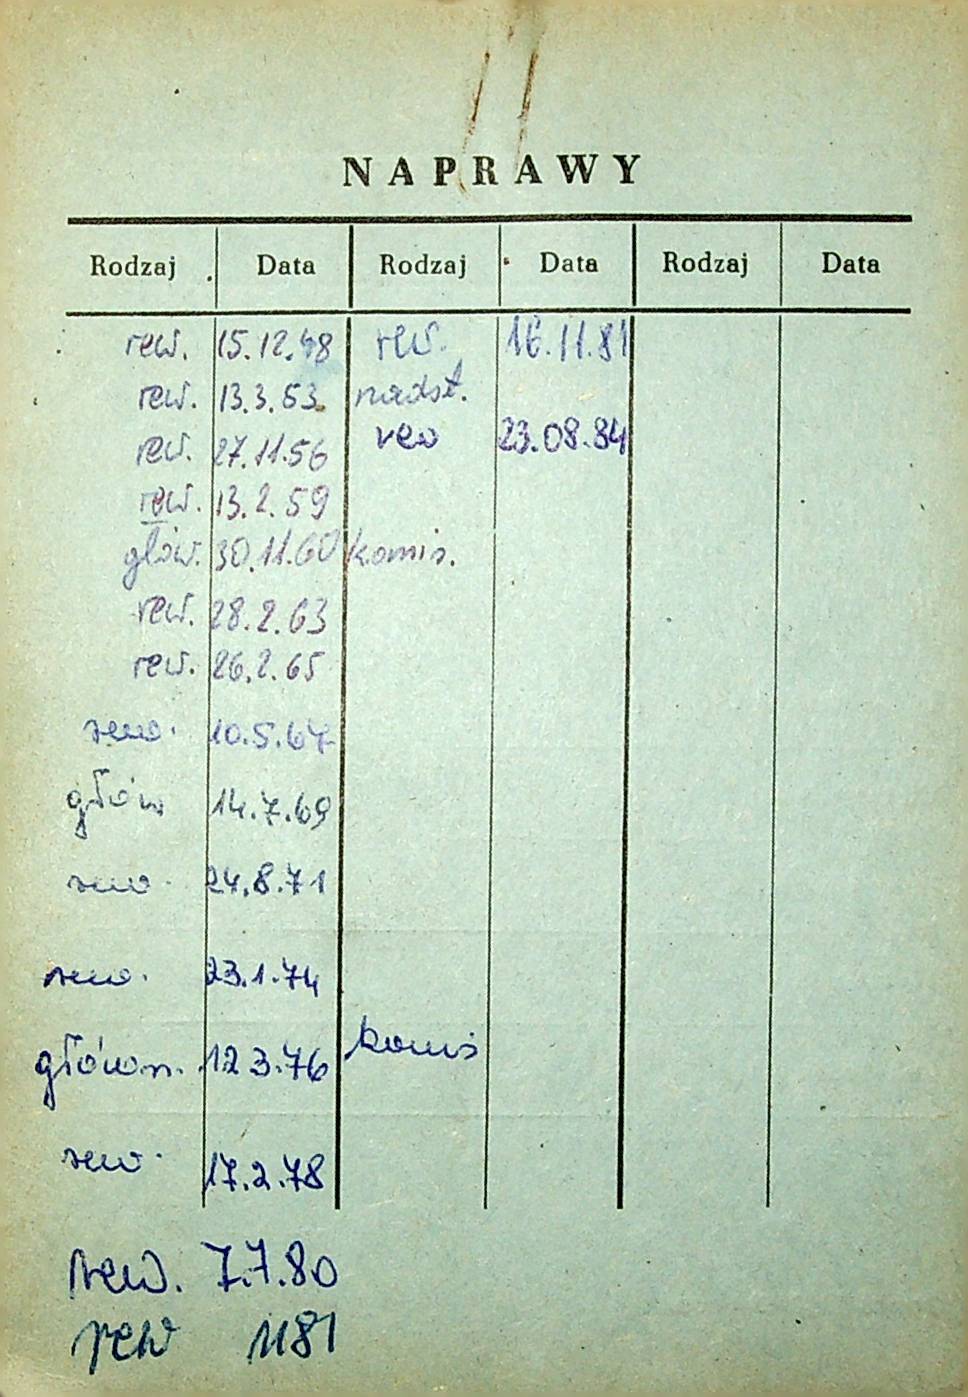 NAPRAWY
Rodzaj Data Rodzaj Data Rodzaj Data
rew. 15.12.48 rew. 16.11.81
rew. 13.3.53 nadst.
rew. 27.11.56 rew 23.08.84
rew. 13.2.59
głów. 30.11.60 komis.
rew. 28.2.63
rew. 26.2.65
rew. 10.5.67
głów 14.7.69
rew. 24.8.71
rew. 23.1.74
główn. 12.3.76 komis
rew. 17.2.78
rew. 7.7.80
rew 1181